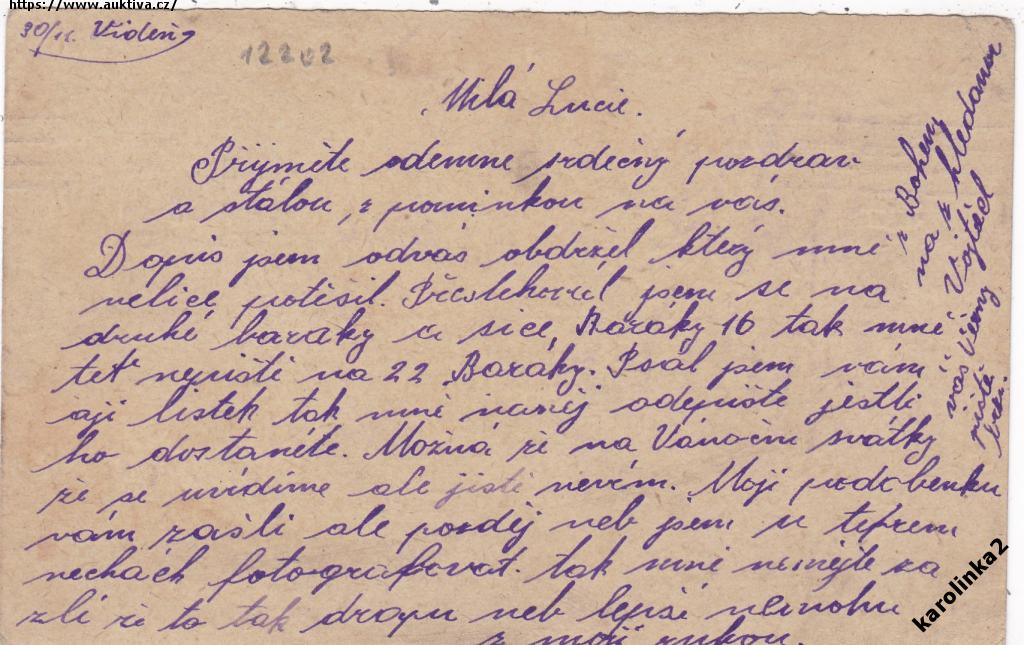 https://www.auktiva.cz/
30/11. Videň
12202
Milá Lucie.
Přijměte odemne srdečný pozdrav
a stálou, z pominkou na vás.
Dopis jsem odvás obdržel který mně
velice potěšil. Přestěhoval jsem se na
druhé baraky a sice, Baráky 16 tak mně
teť nepiště na 22 Baráky. Psal jsem vám
aji listek tak mně odepište jestli
ho dostaněte. Možná ři na Vánočni svátky
ři se uvidime ale jistě nevím. Moji podobenku
vám zašli ale pozděj neb jsem u
nechách fotografovat. tak mně nemějte za
zlí ři to tak drapu neb lepší nemohu
z moji rukou.
z Bohem
na z hledanou
váš Věrný Vojtěch
piště
karolinka2